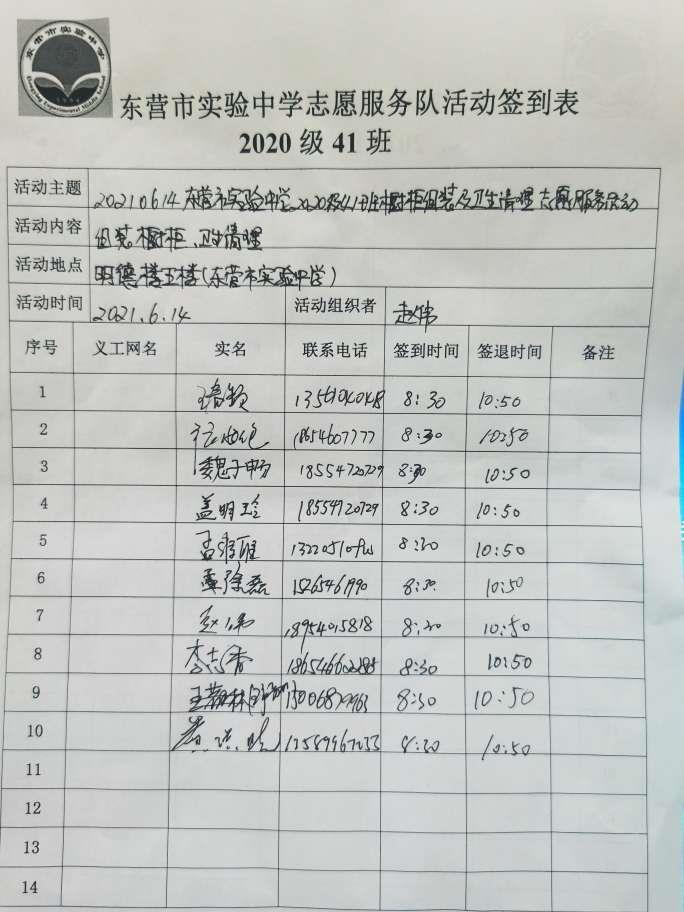 东营市实验中学
Dongying Experimental Middle School
东营市实验中学志愿服务队活动签到表
2020级41班
活动主题 20210614东营市实验中学2020级41班橱柜组装及卫生清理志愿服务活动
活动内容 组装橱柜、卫生清理
活动地点 明德楼五楼(东营市实验中学)
活动时间 2021.6.14 活动组织者 赵伟
序号 义工网名 实名 联系电话 签到时间 签退时间 备注
1 8:30 10:50
2 18654607777 8:30 10:50
3 魏子畅 18554720729 8:30 10:50
4 盖明玲 18554720729 8:30 10:50
5 8:30 10:50
6 15265461990 8:30 10:50
7 赵伟 18954015818 8:30 10:50
8 李志香 8:30 10:50
9 8:30 10:50
10 13589967033 8:30 10:50
11
12
13
14